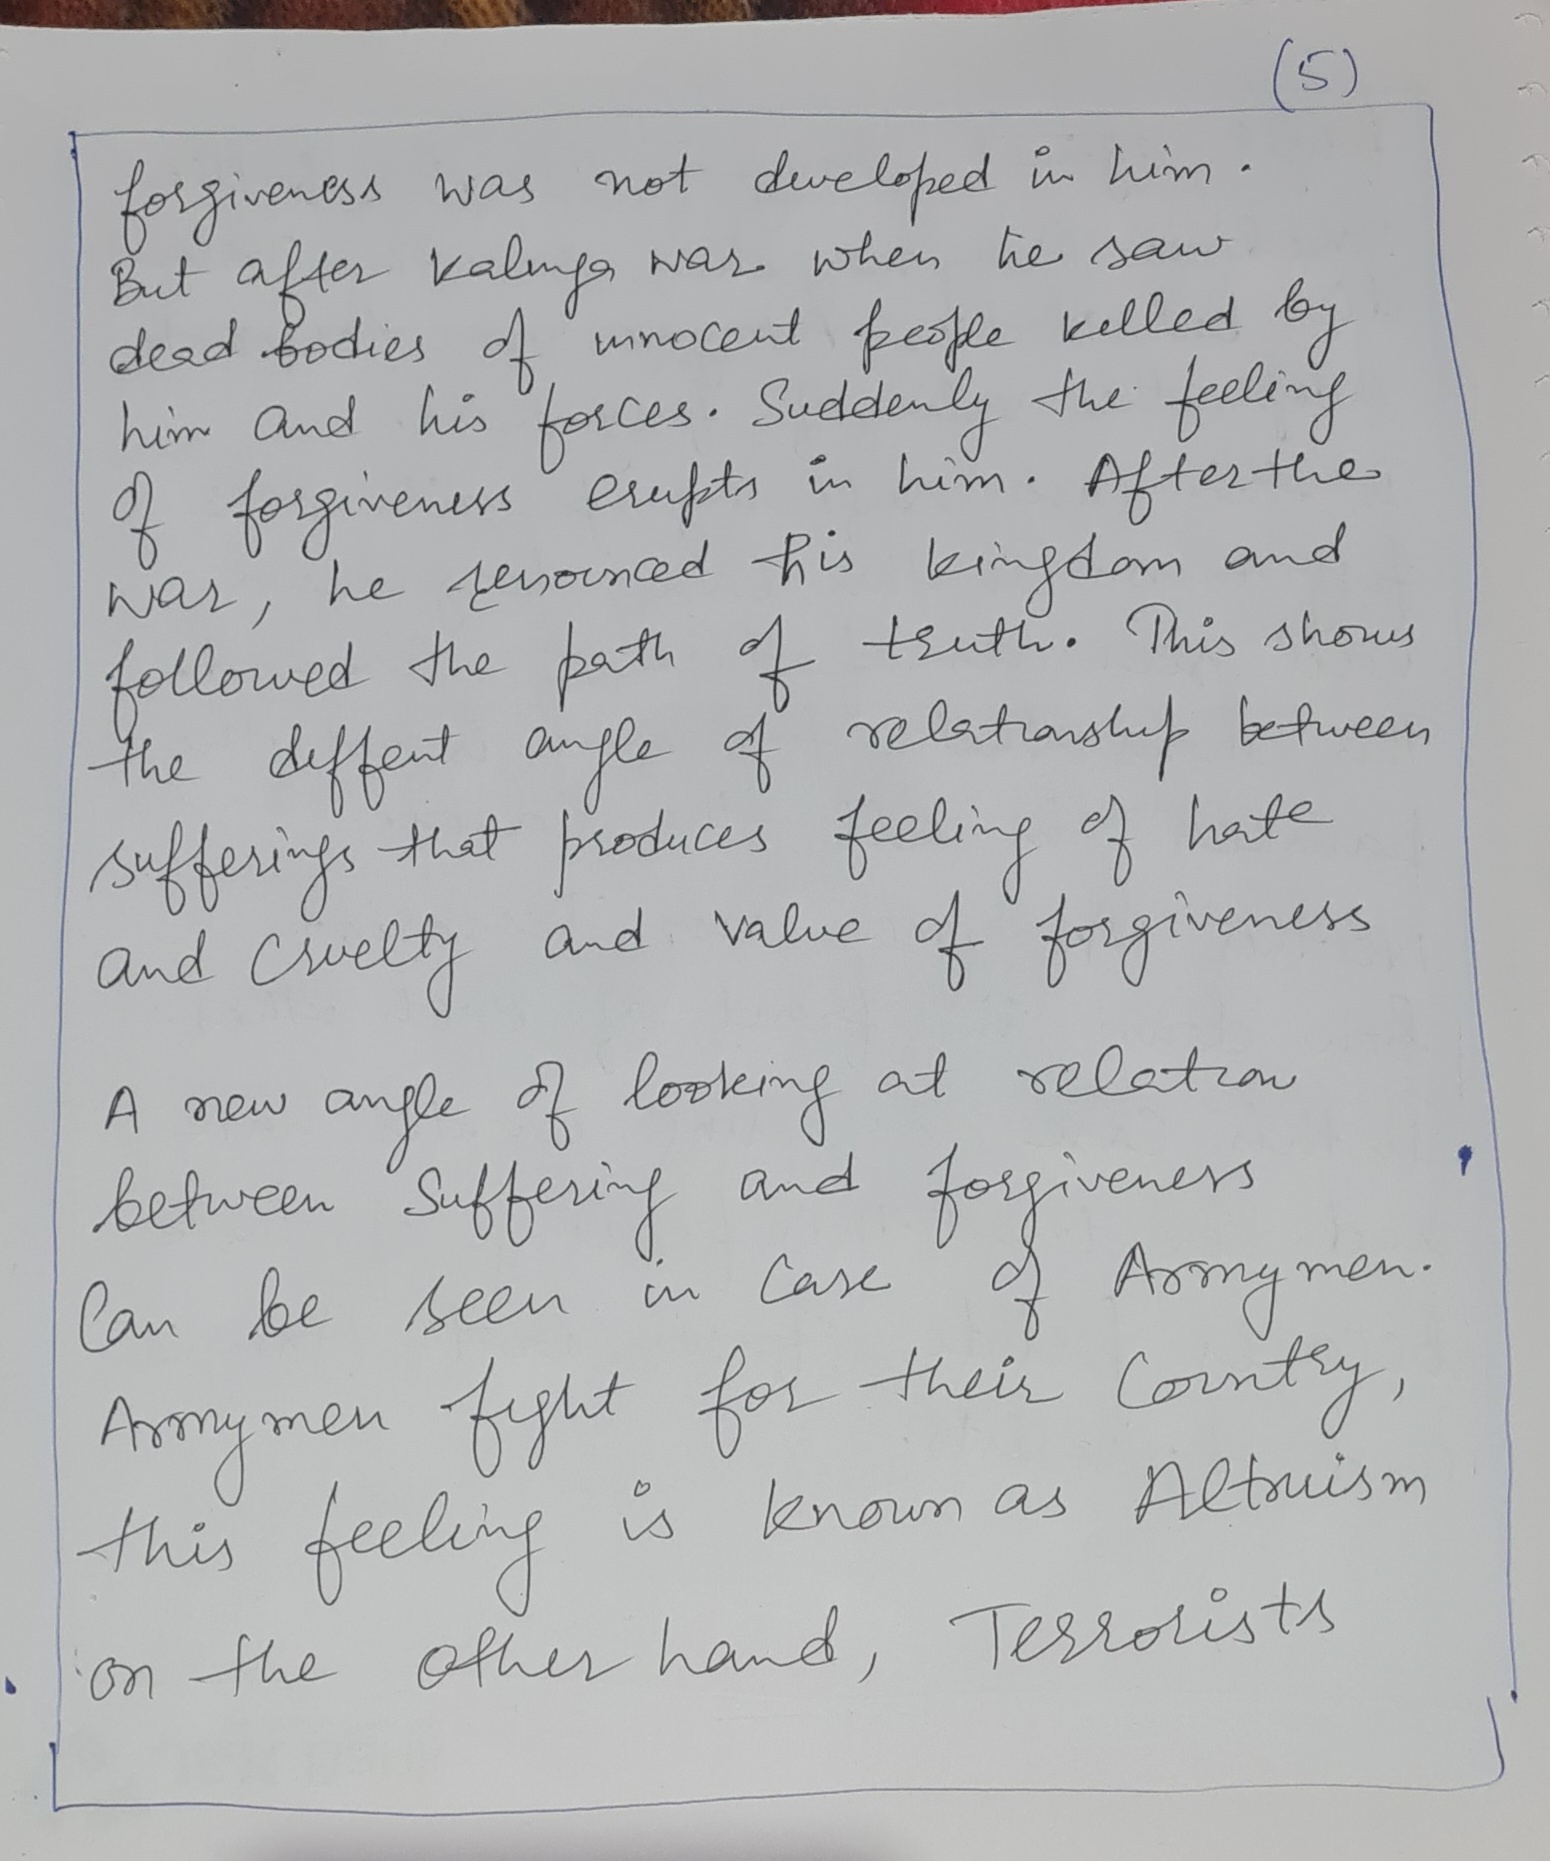 (5)
forgiveness was not developed in him.
But after Kalinga war when he saw
dead bodies of innocent people killed by
him and his forces. Suddenly the feeling
of forgiveness erupts in him. After the
war, he renounced his kingdom and
followed the path of truth. This shows
the diffent angle of relationship between
sufferings that produces feeling of hate
and Cruelty and value of forgiveness
A new angle of looking at relation
between Suffering and forgiveness
Can be seen in Case of Armymen.
Armymen fight for their Country,
this feeling is known as Altruism
on the other hand, Terrorists